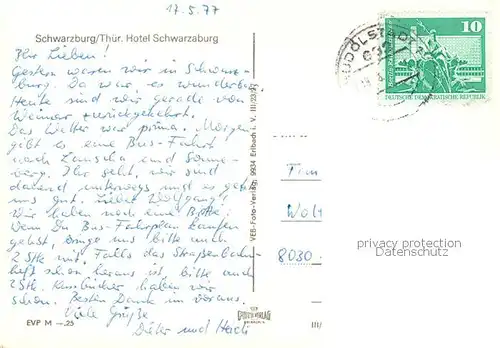 17.5.77
Schwarzburg/Thür. Hotel Schwarzaburg
Ihr Lieben!
Gestern waren wir in Schwarz-
burg. Da war es wunderbar
Heute sind wir gerade von
Weimar zurückgekehrt.
Das Wetter war prima. Morgen
gibt es eine Bus-Fahrt
nach Lauscha und Sonne-
berg. Ihr seht, wir sind
dauernd unterwegs und es geht
uns gut. Lieber Wolfgang!
Wir haben noch eine Bitte:
Wenn Du Bus-Fahrplan kaufen
gehst, bringe uns bitte auch
2 Stk mit. Falls das Straßenbahn-
heft schon heraus ist, bitte auch
2 Stk. Kursbücher haben wir
schon. Besten Dank im voraus.
Viele Grüße
Dieter und Heidi
EVP M —,25
VEB-Foto-Verlag 9934 Erlbach i. V.
III/
RUDOLSTADT
10
DEUTSCHE DEMOKRATISCHE REPUBLIK
Tim
Wolf
8030
privacy protection
Datenschutz